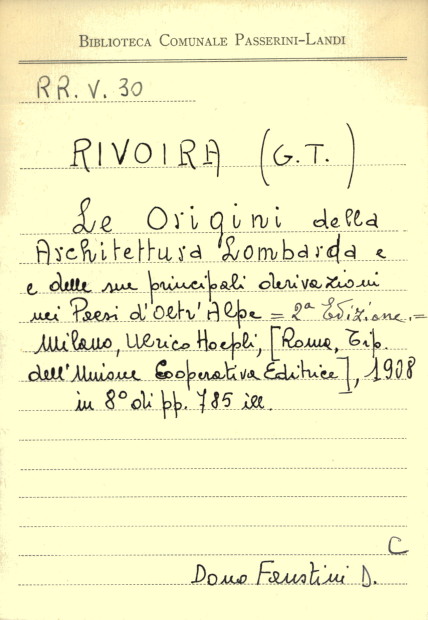 BIBLIOTECA COMUNALE PASSERINI-LANDI
RR. V. 30
RIVOIRA (G.T.)
Le Origini della
Architettura Lombarda e
e delle sue principali derivazioni
nei Paesi d'Oltr'Alpe = 2ª Edizione. =
Milano, Ulrico Hoepli, [Roma, Tip.
dell'Unione Cooperativa Editrice], 1908
in 8° di pp. 785 ill.
C
Dono Faustini D.